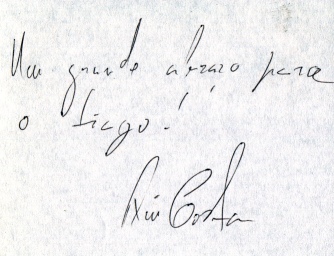 Um grande abraço para
o Tiago!
Costa